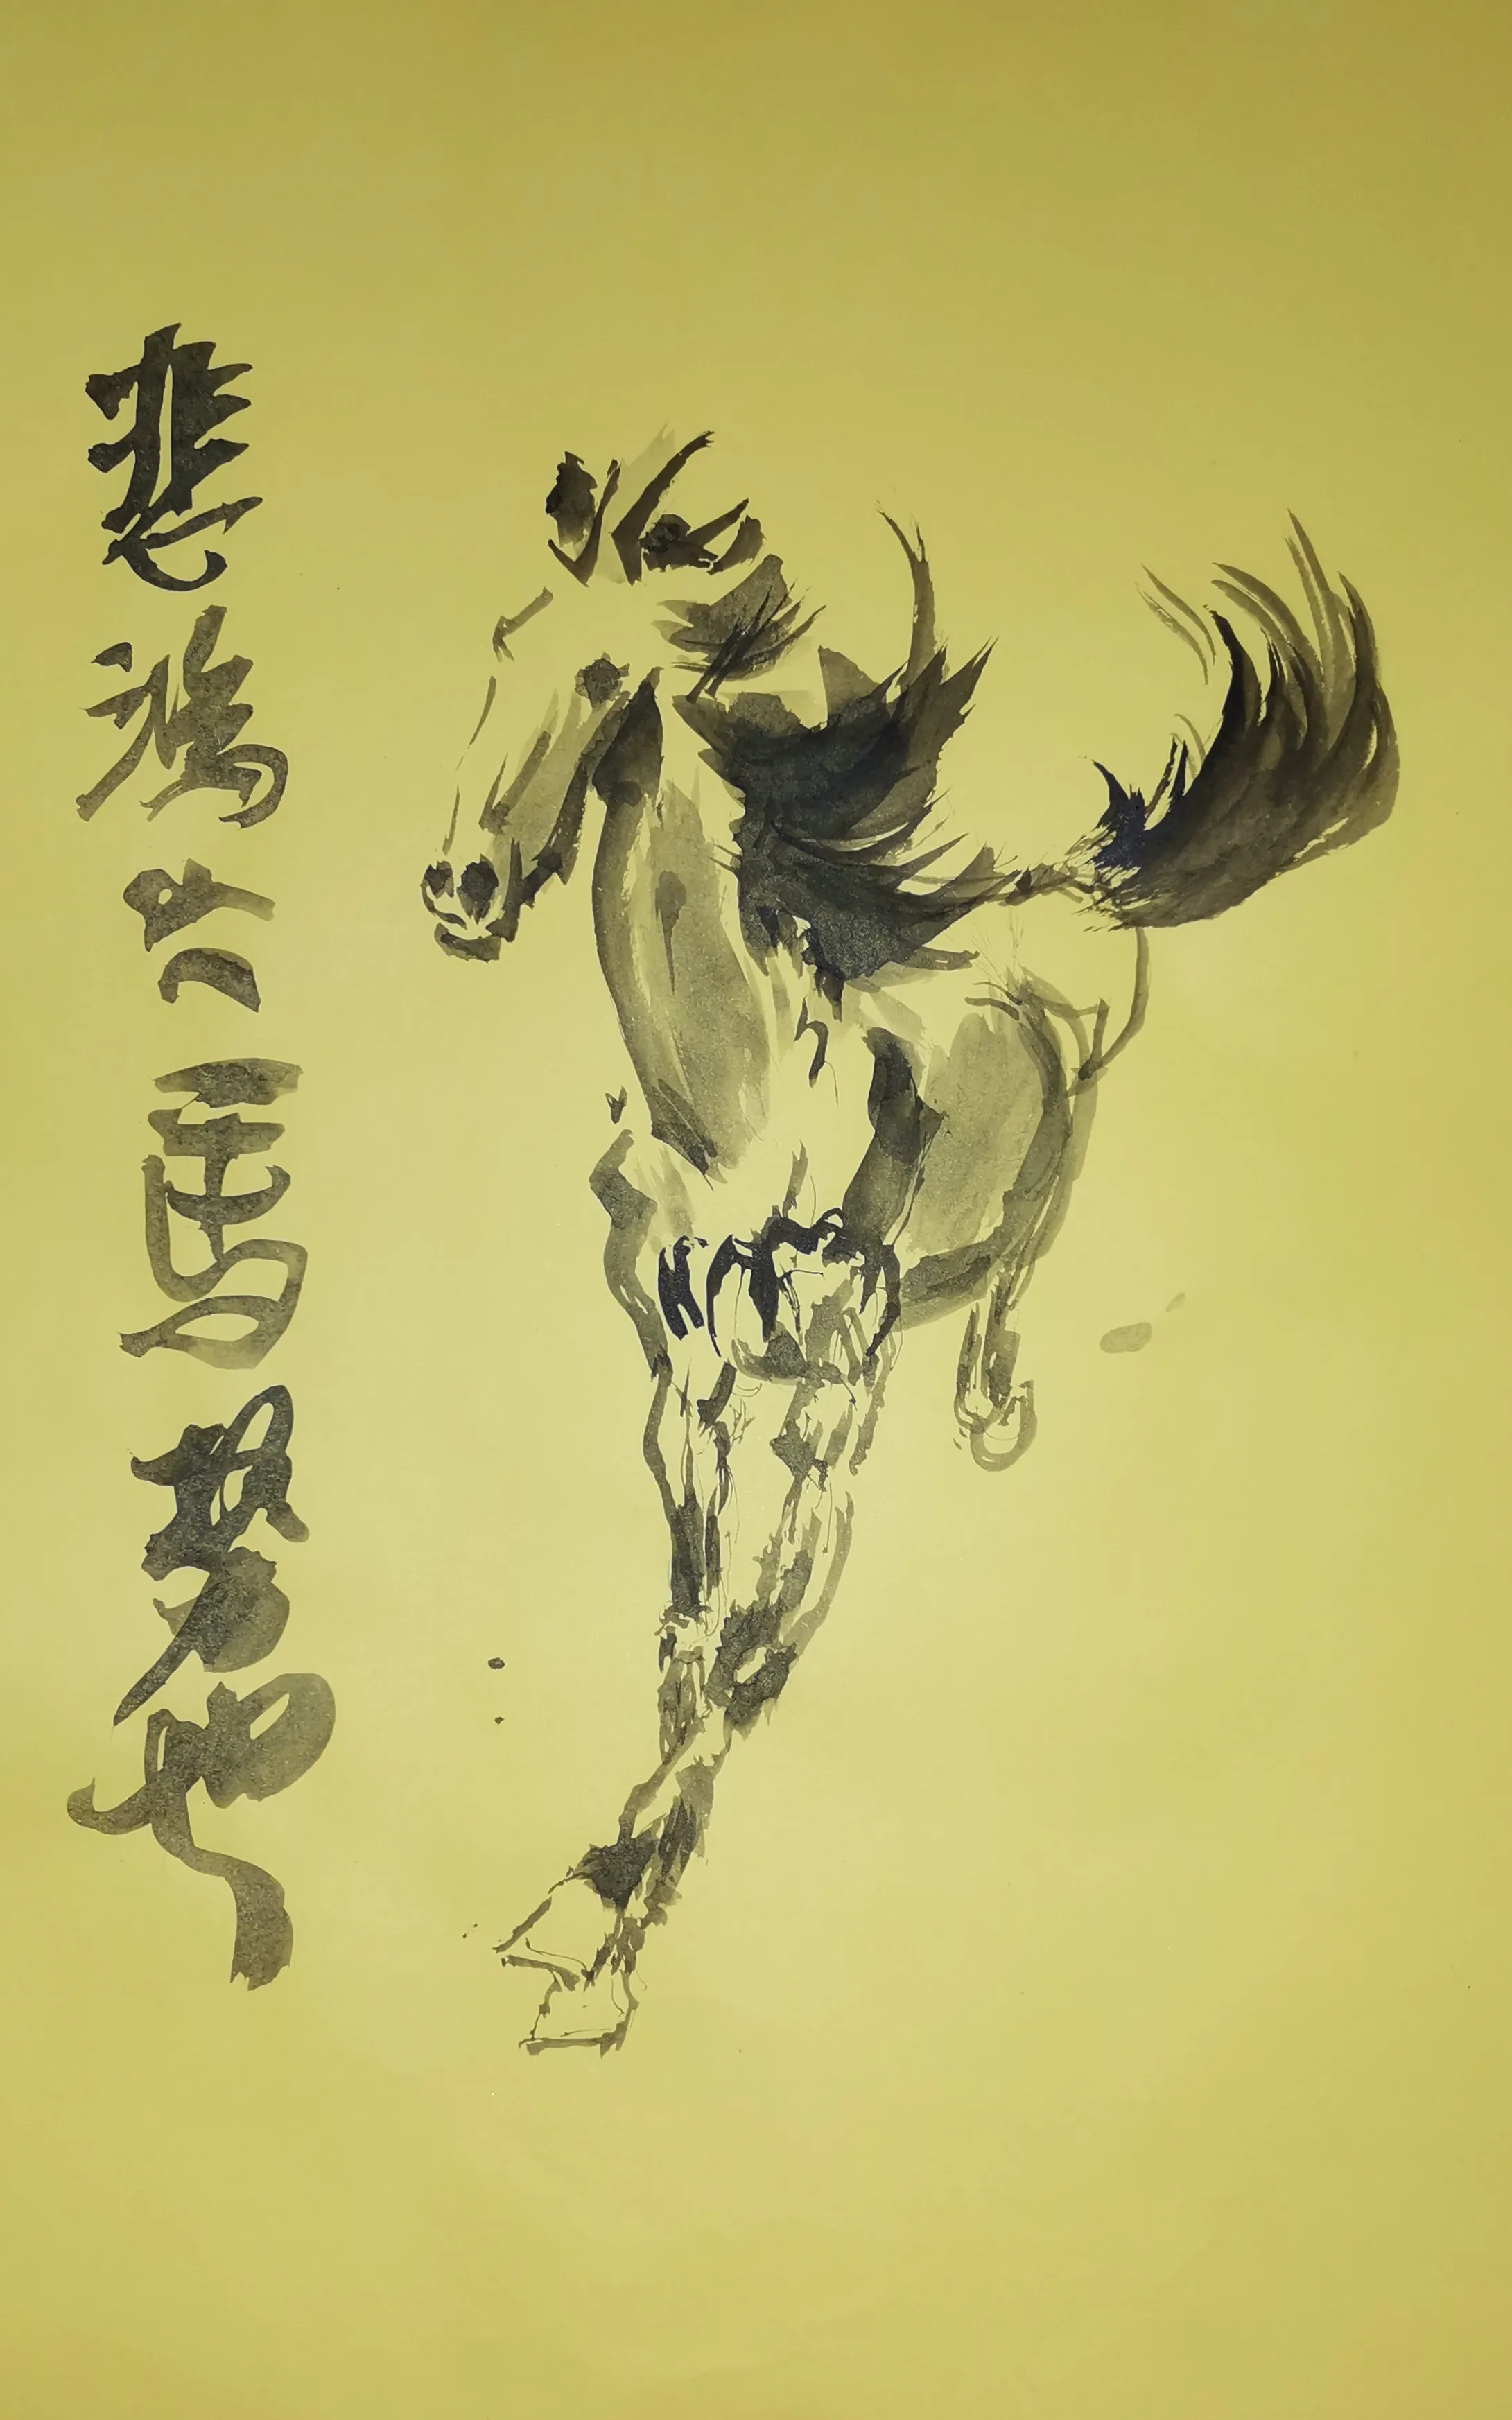 悲鴻之馬勢也